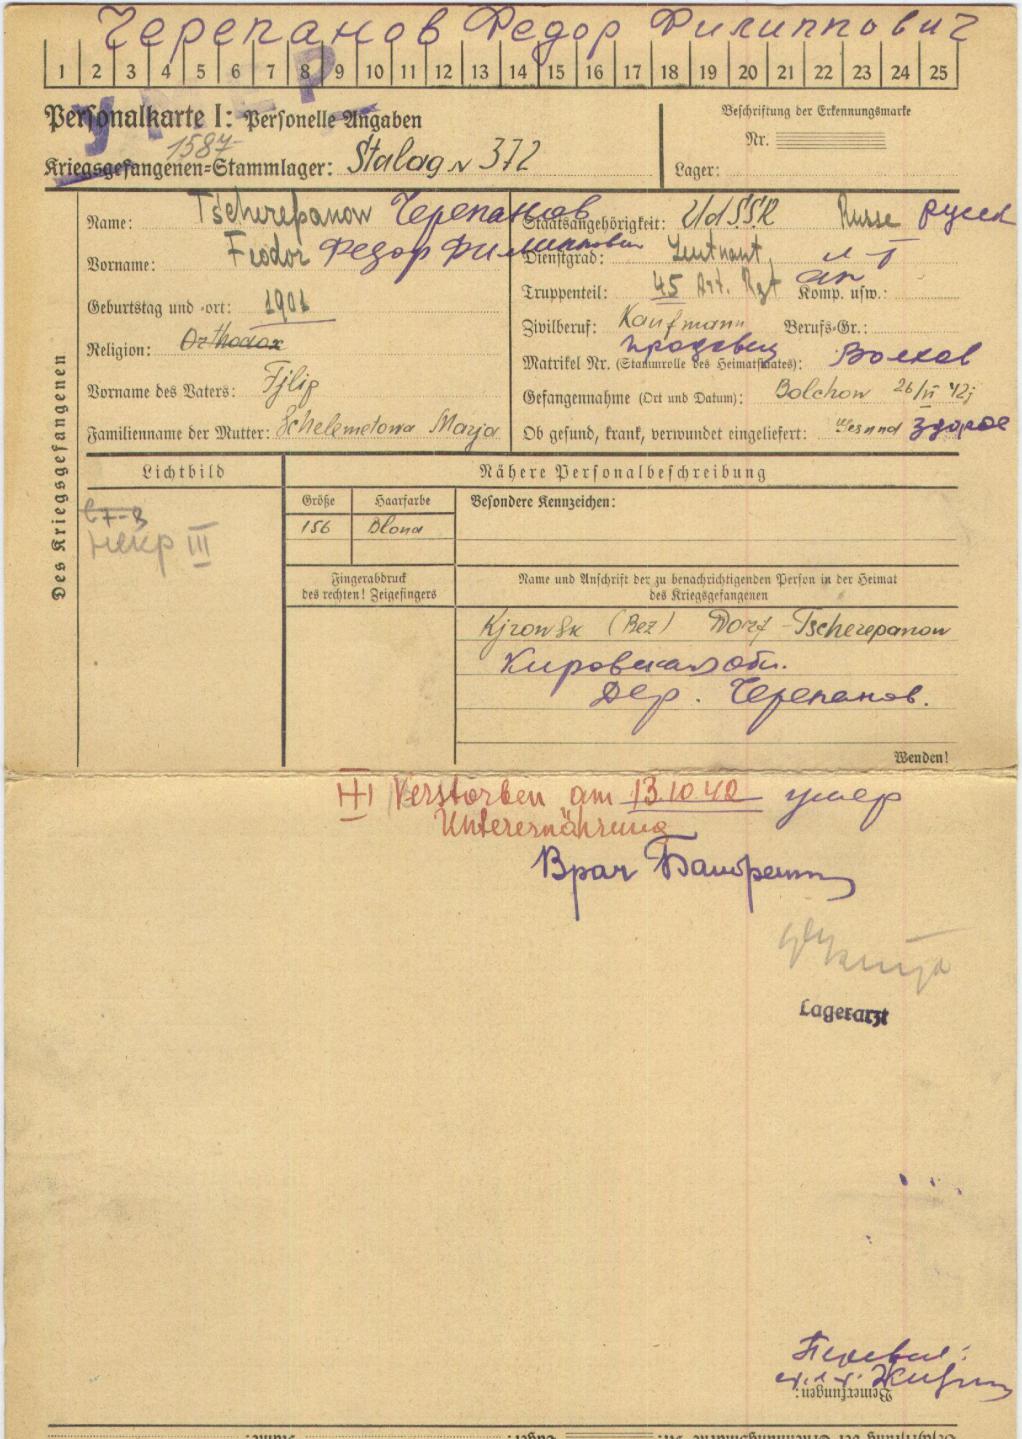 Черепанов Федор Филиппович
1 2 3 4 5 6 7 8 9 10 11 12 13 14 15 16 17 18 19 20 21 22 23 24 25
Personalkarte I: Personelle Angaben
Beschriftung der Erkennungsmarke
Nr.
1587
Kriegsgefangenen-Stammlager: Stalag N 372
Lager:
Des Kriegsgefangenen
Name: Tscherepanow Черепанов
Staatsangehörigkeit: UdSSR Russe
Vorname: Feodor Федор Филиппович
Dienstgrad: Leutnant
Truppenteil: 45 Art. Rgt Komp. usw.:
Geburtstag und -ort: 1901
Zivilberuf: Kaufmann Berufs-Gr.:
продавец
Religion: Orthodox
Matrikel Nr. (Stammrolle des Heimatstaates): Волхов
Vorname des Vaters: Fjlip
Gefangennahme (Ort und Datum): Bolchow 26/VI 42j
Familienname der Mutter: Schelemetowa Marja
Ob gesund, krank, verwundet eingeliefert: Gesund
Lichtbild
Nähere Personalbeschreibung
Größe Haarfarbe
Besondere Kennzeichen:
156 Blond
III
Fingerabdruck
des rechten! Zeigefingers
Name und Anschrift der zu benachrichtigenden Person in der Heimat
des Kriegsgefangenen
Kjrowsk (Bez) Dorf-Tscherepanow
Кировская обл.
Дер. Черепанов.
Wenden!
Verstorben am 13.10.42 умер
Unterernährung
Врач
Lagerarzt
Перевел:
Bemerkungen: